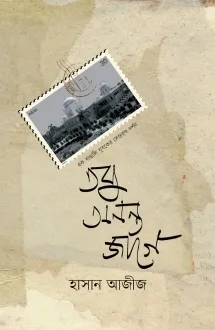 তবু
অনন্ত
জাগে
হাসান আজীজ